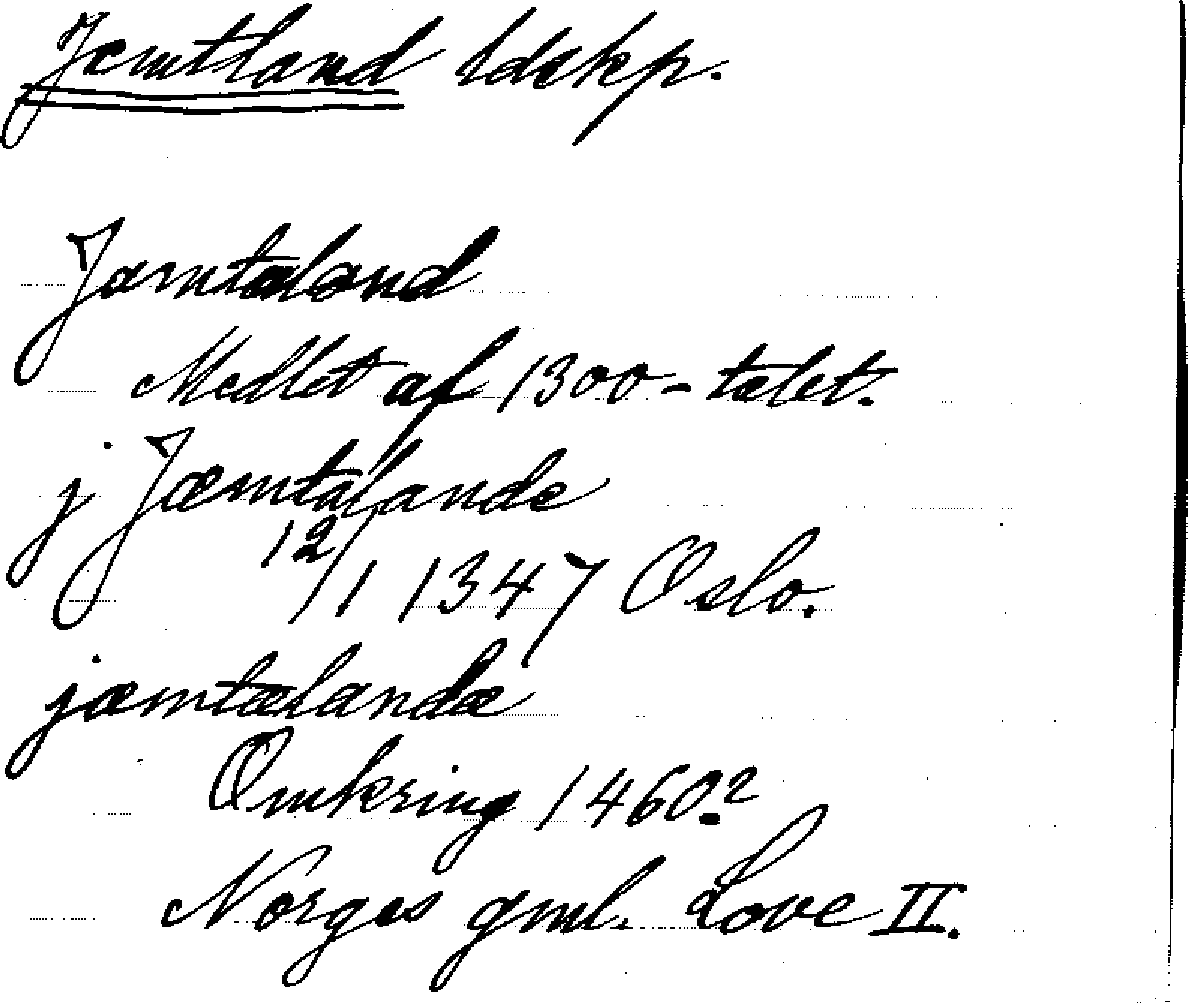 Jemtland ldskp.
Jæmtaland
Medlet af 1300-talet.
j Jæmtalande
12/1 1347 Oslo.
jæmtælandæ
Omkring 1460?
Norges gml. Love II.